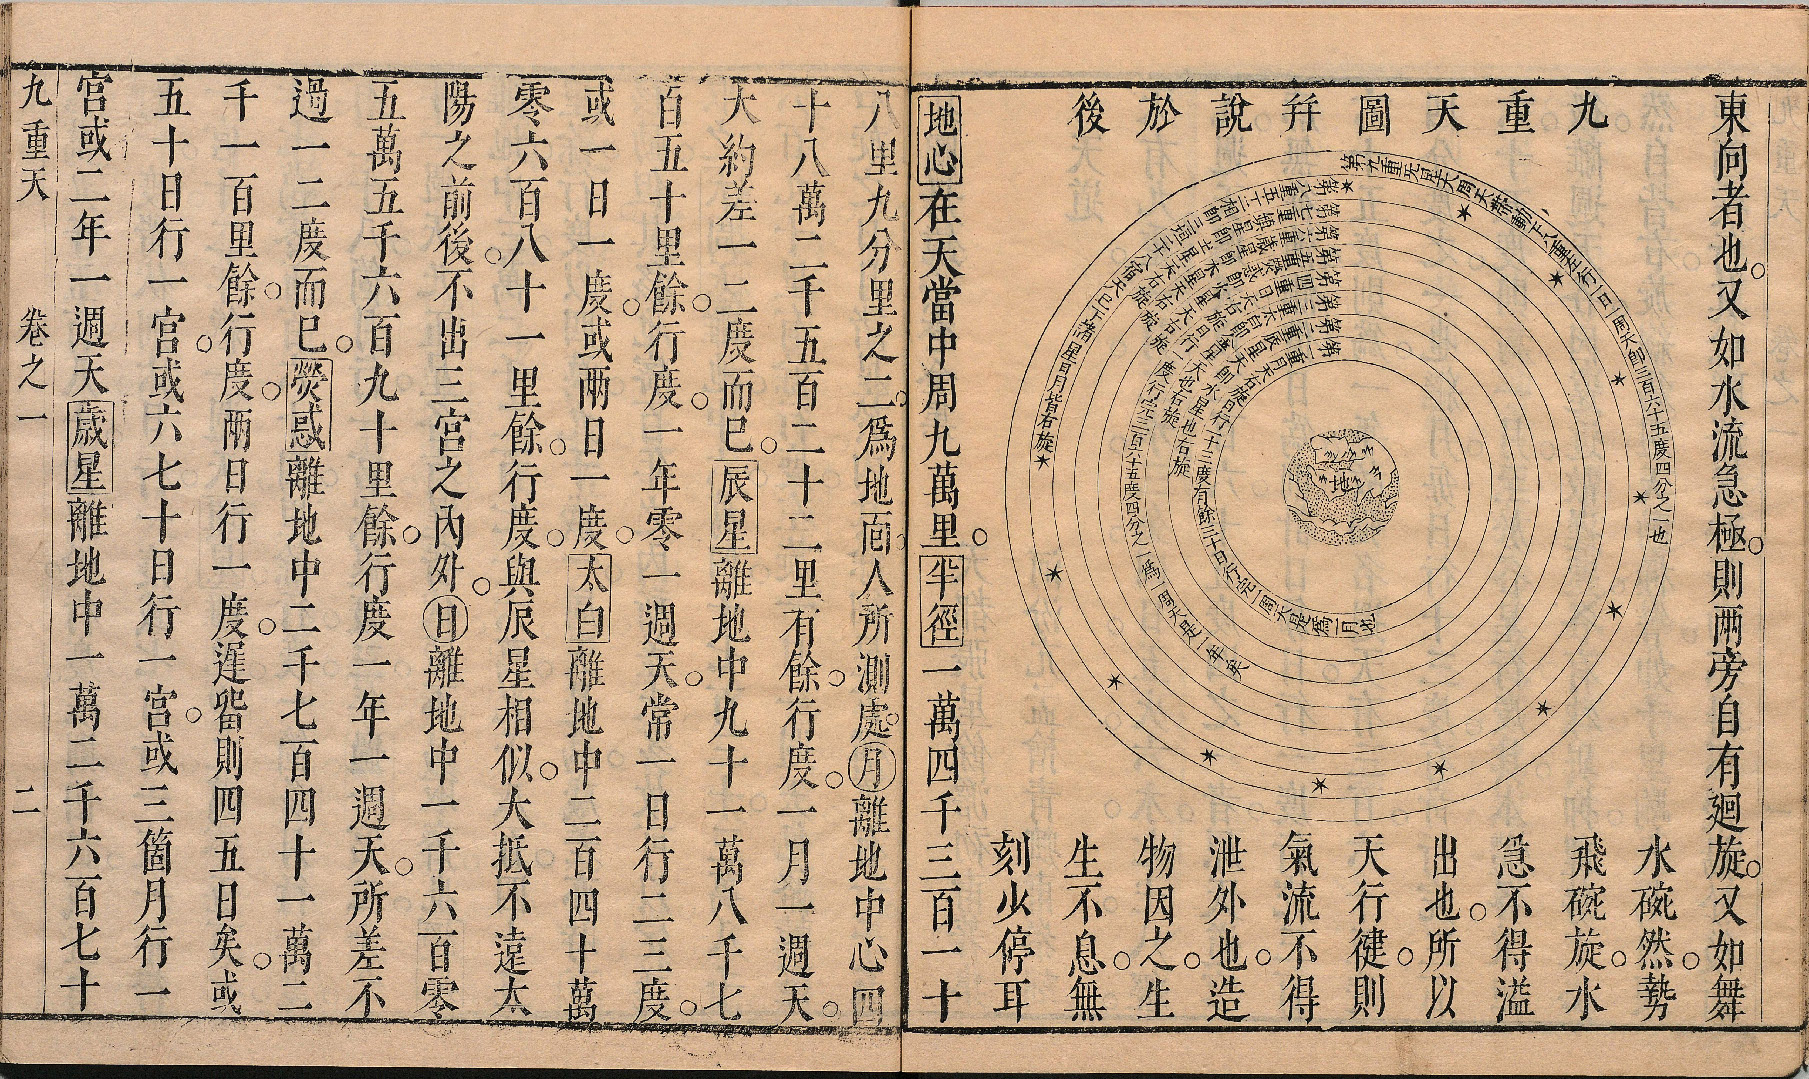 東向者也又如水流急極則两旁自有廻旋又如舞
水碗然勢
飛碗旋水
急不得溢
出也所以
天行健則
氣流不得
泄外也造
物因之生
生不息無
刻少停耳
九重天圖并說於後
第九重无星天周天帶動下八重左行一日一周天即三百六十五度四分之一也
第八重五十二相即三週二十八宿天已下諸星日月皆右旋
第七重鎮星即土星天右旋
第六重歲星即木星天右旋
第五重熒惑即火星天右旋
第四重日
度行完三百六十五度四分之一爲一周天是一年矣
第三重太白即
第二重辰星即水星也右旋
第一重月天右旋日行十三度有餘三十日行完一周天是爲一月也
地
地心在天當中周九萬里半徑一萬四千三百一十
八里九分里之二爲地面人所測處月離地中心四
十八萬二千五百二十二里有餘行度一月一週天
大約差一二度而已辰星離地中九十一萬八千七
百五十里餘行度一年零一週天常一日行二三度
或一日一度或兩日一度太白離地中二百四十萬
零六百八十一里餘行度與辰星相似大抵不遠太
陽之前後不出三宮之內外日離地中一千六百零
五萬五千六百九十里餘行度一年一週天所差不
過一二度而已熒惑離地中二千七百四十一萬二
千一百里餘行度兩日行一度遲畱則四五日矣或
五十日行一宮或六七十日行一宮或三箇月行一
宮或二年一週天歲星離地中一萬二千六百七十
九重天 卷之一 二